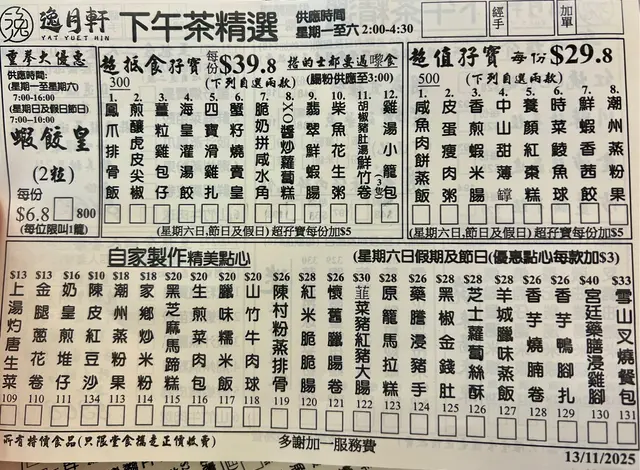 逸
逸月軒
YAT YUET HIN
下午茶精選
供應時間
星期一至六 2:00-4:30
經手
加單
重拳大優惠
供應時間:
(星期一至星期六)
7:00-16:00
(星期日及假日節日)
7:00--10:00
蝦餃皇
(2粒)
每份
$6.8
800
(每位限叫1籠)
超抵食孖寶 每份$39.8 搭的士都要過嚟食
300 (下列自選兩款) (腸粉供應至3:00)
1. 鳳爪排骨飯
2. 煎釀虎皮尖椒
3. 薑粒雞仔包
4. 海皇灌湯餃
5. 四寶滑雞扎
6. 蟹籽燒賣皇
7. 脆奶拼咸水角
8. XO醬炒蘿蔔糕
9. 翡翠鮮蝦腸
10. 柴魚花生粥
11. 胡椒豬肚湯鮮竹卷
12. 雞湯小籠包
(星期六日,節日及假日) 超孖寶每份加$5
超值孖寶 每份$29.8
500 (下列自選兩款)
1. 咸魚肉餅蒸飯
2. 皮蛋瘦肉粥
3. 香煎蝦米腸
4. 中山甜薄罉
5. 養顏紅棗糕
6. 時菜鯪魚球
7. 鮮蝦香茜餃
8. 潮州蒸粉果
(星期六日,節日及假日) 超孖寶每份加$5
自家製作精美點心 (星期六日假期及節日(優惠點心每款加$3)
$13 上湯灼唐生菜 109
$13 金腿蔥花卷 110
$16 奶皇煎堆仔 111
$10 陳皮紅豆沙 112
$18 潮州蒸粉果 113
$18 家鄉炒米粉 114
$20 黑芝麻馬蹄糕 115
$20 生煎菜肉包 116
$20 臘味糯米飯 117
$20 山竹牛肉球 118
$26 陳村粉蒸排骨 119
$28 紅米脆脆腸 120
$26 懷舊臘腸卷 121
$30 韮菜豬紅豬大腸 122
$28 原籠馬拉糕 123
$28 藥膳浸豬手 124
$28 黑椒金錢肚 125
$28 芝士蘿蔔絲酥 126
$28 羊城臘味蒸飯 127
$26 香芋燒腩卷 128
$26 香芋鴨腳扎 129
$40 宮廷藥膳浸雞腳 130
$33 雪山叉燒餐包 131
所有特價食品(只限堂食攜走正價收費)
多謝加一服務費
13/11/2025